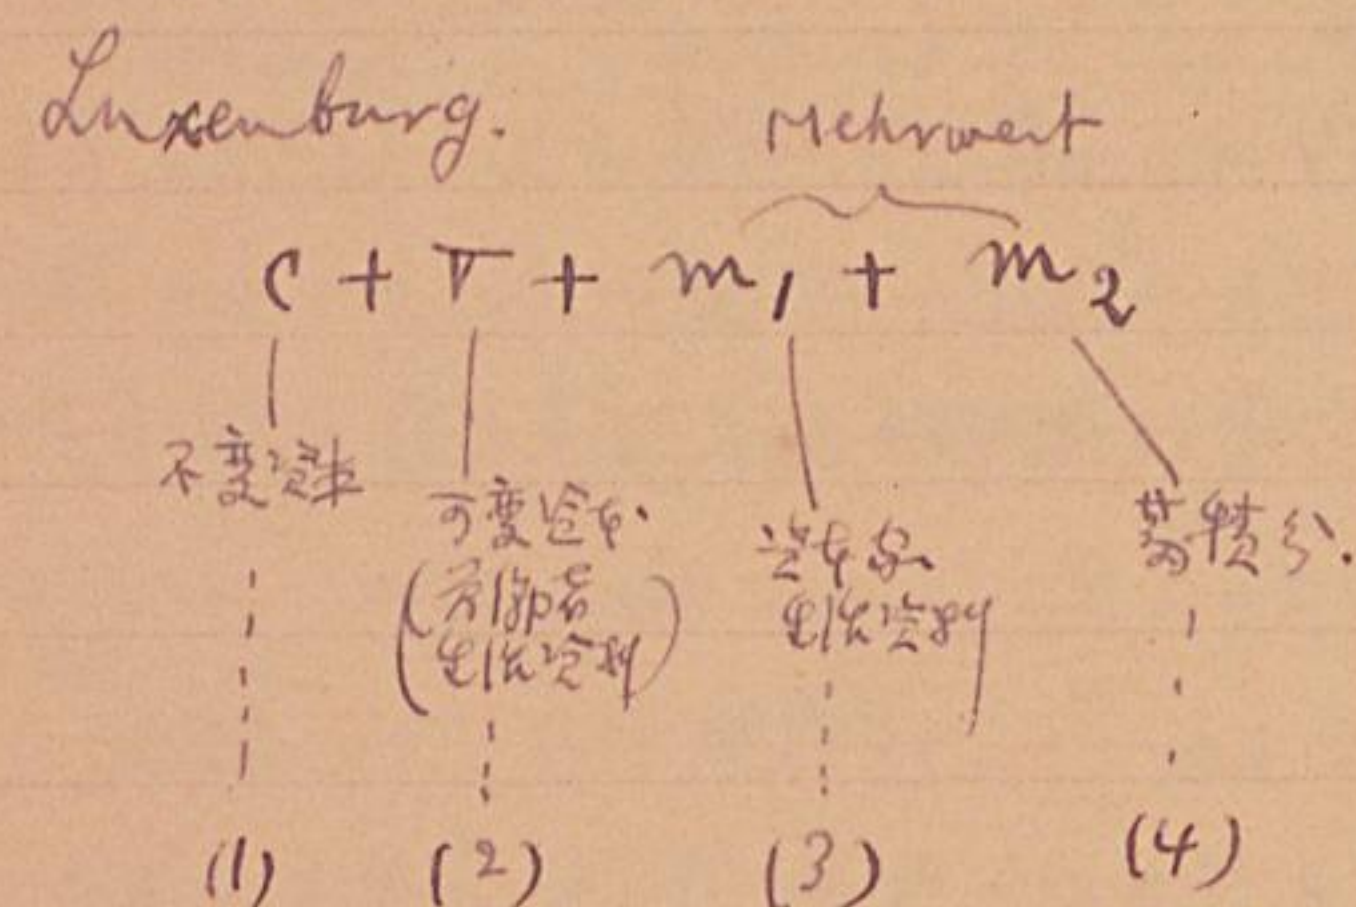 Luxenburg.
Mehrwert
c + v + m1 + m2
不変資本
可変資本
(労働者
生活資料)
資本家
生活資料
蓄積分.
(1) (2) (3) (4)